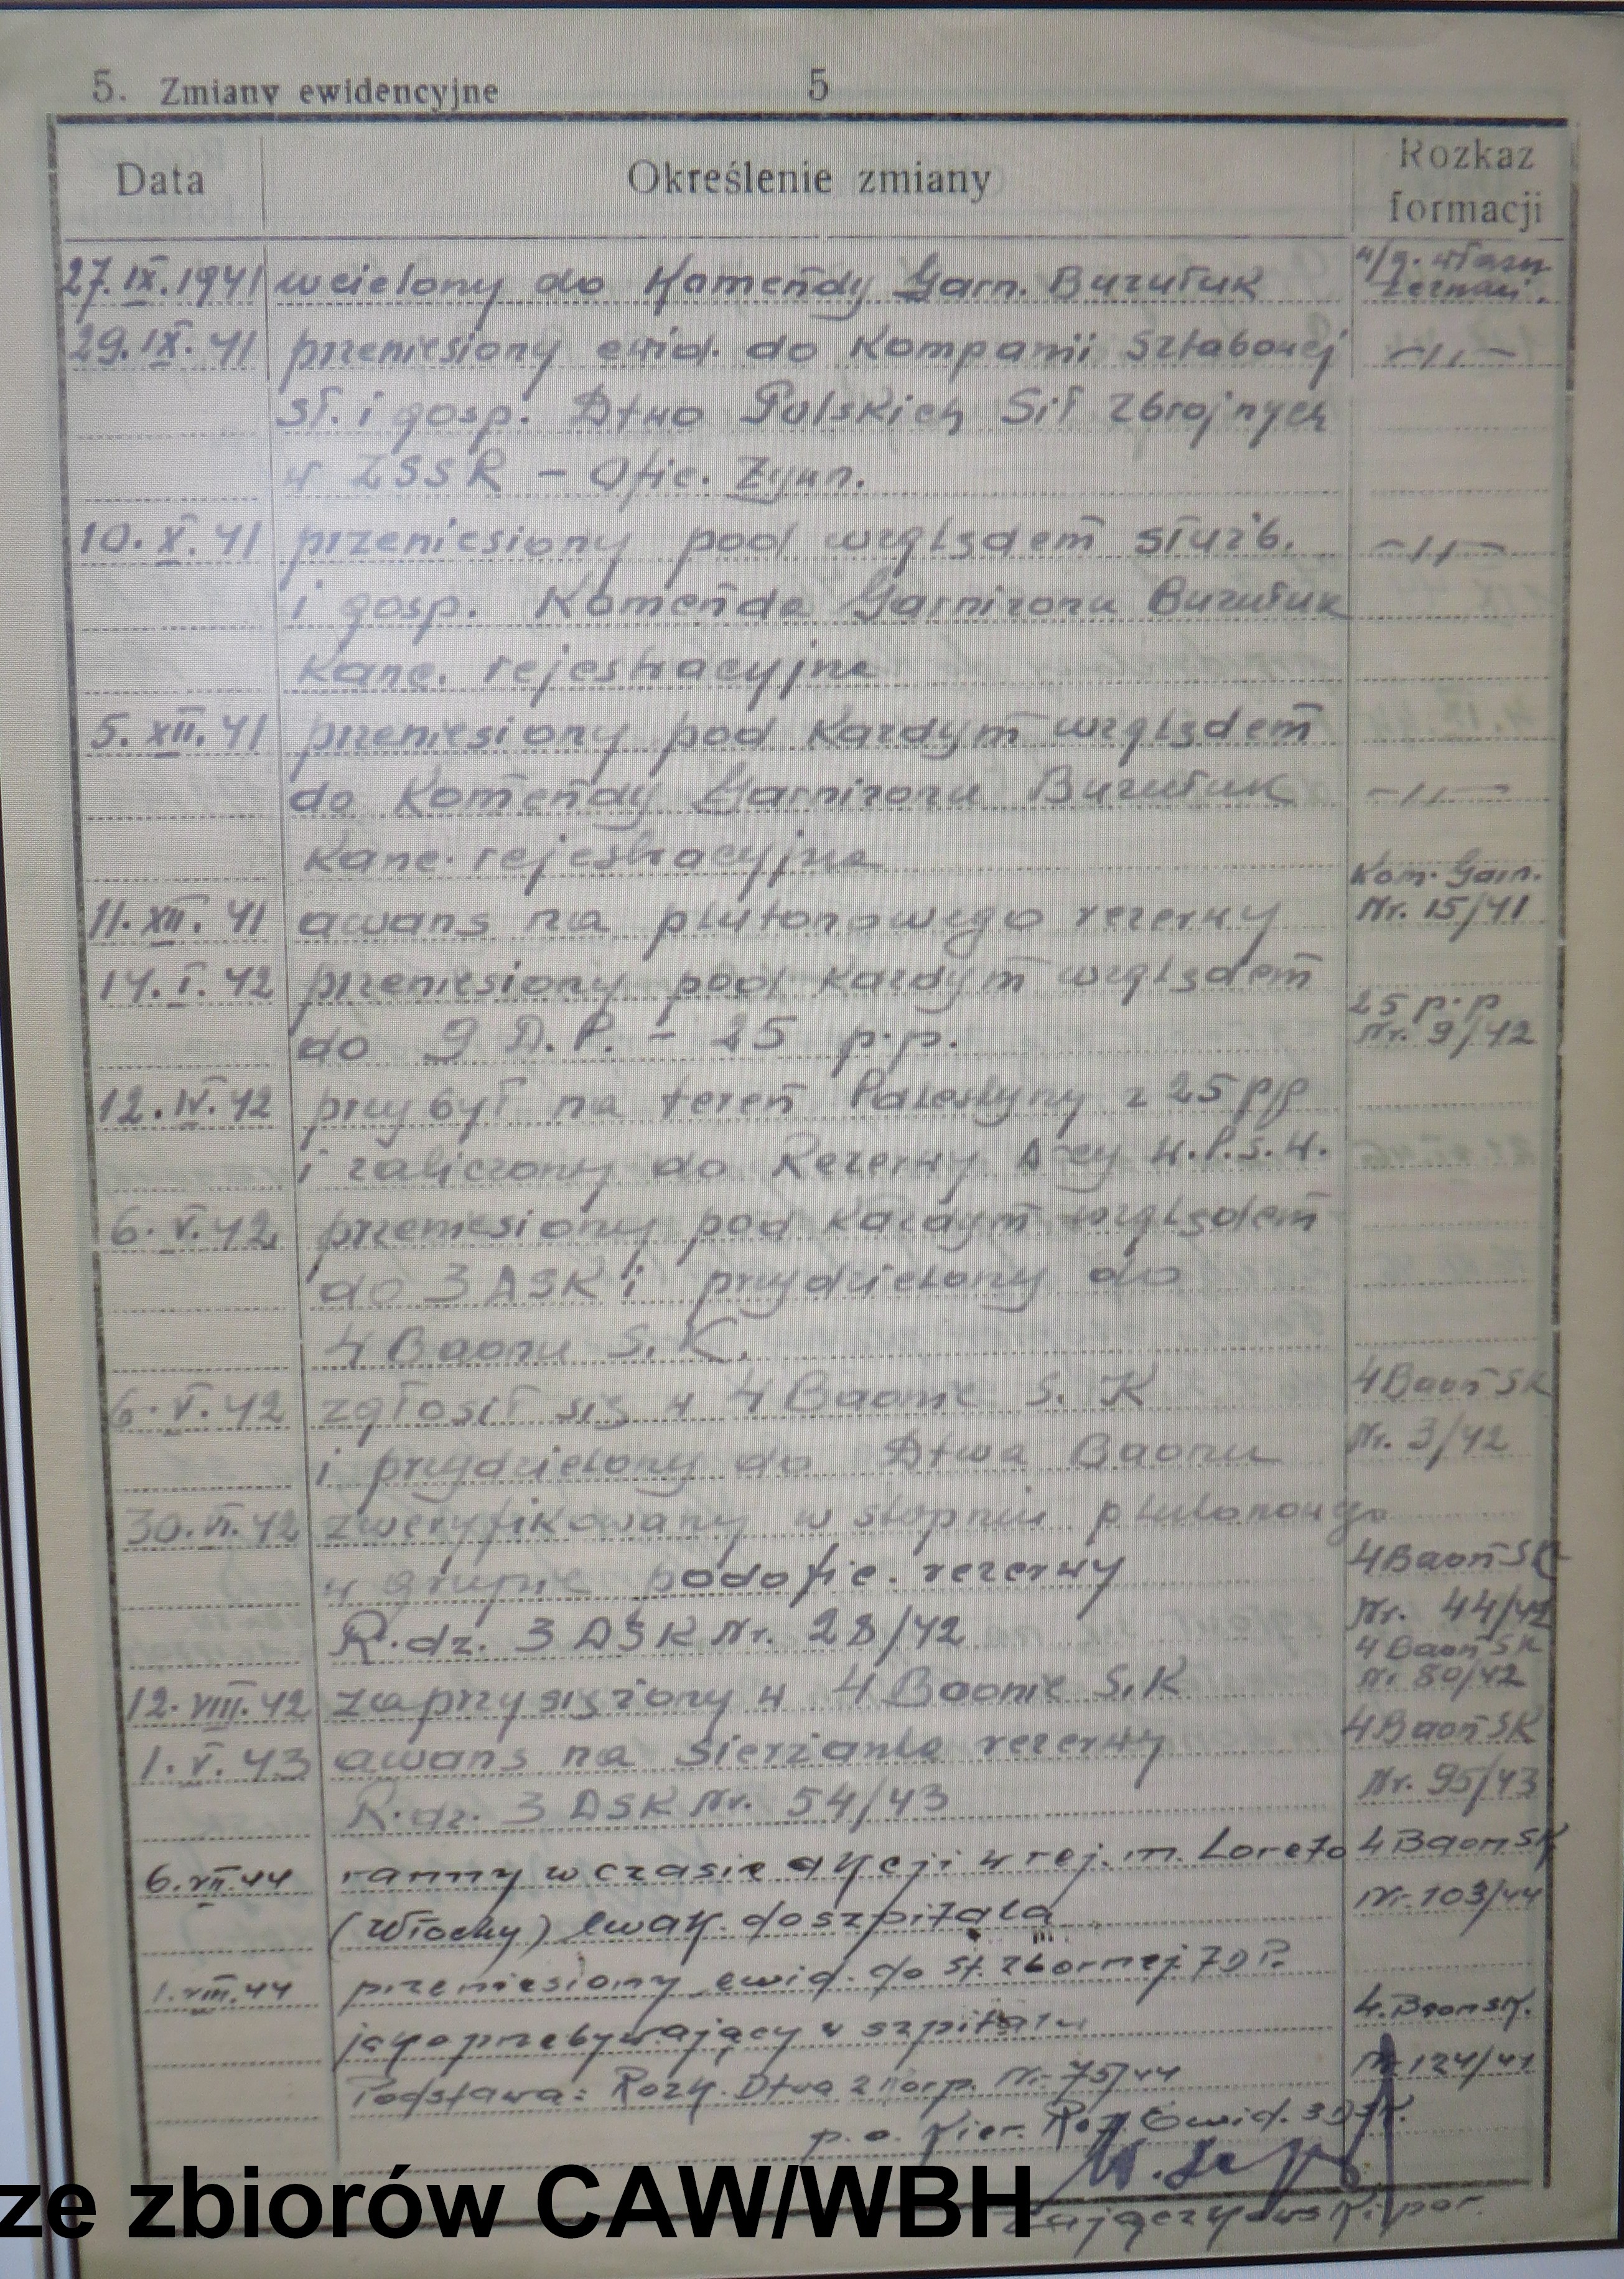 5. Zmiany ewidencyjne 5
Data Określenie zmiany Rozkaz formacji
27.IX.1941 wcielony do Komendy Garn. Buzułuk w/g. własn. zeznań.
29.IX.41 przeniesiony ewid. do Kompanii Sztabowej -„-
sł. i gosp. Dtwo Polskich Sił Zbrojnych
w ZSSR - Ofic. Żywn.
10.X.41 przeniesiony pod względem służb. -„-
i gosp. Komenda Garnizonu Buzułuk
Kanc. rejestracyjna
5.XII.41 przeniesiony pod każdym względem
do Komendy Garnizonu Buzułuk -„-
Kanc. rejestracyjna
Kom. Garn.
11.XII.41 awans na plutonowego rezerwy Nr. 15/41
14.I.42 przeniesiony pod każdym względem
25 p.p
do 9 D.P. - 25 p.p. Nr. 9/42
12.IV.42 przybył na teren Palestyny z 25 pp
i zaliczony do Rezerwy D-cy W.P.S.W.
6.V.42 przeniesiony pod każdym względem
do 3 DSK i przydzielony do
4 Baonu S.K.
6.V.42 zgłosił się w 4 Baonie S.K 4 Baon SK
i przydzielony do Dtwa Baonu Nr. 3/42
30.VI.42 zweryfikowany w stopniu plutonowego
w grupie podofic. rezerwy 4 Baon SK
R.dz. 3 DSK Nr. 28/42 Nr. 44/42
4 Baon SK
12.VIII.42 zaprzysiężony w 4 Baonie S.K Nr 80/42
1.V.43 awans na sierżanta rezerwy 4 Baon SK
R.dz. 3 DSK Nr. 54/43 Nr. 95/43
6.VII.44 ranny w czasie akcji w rej. m. Loreto 4 Baon SK
(Włochy) Ewak. do szpitala Nr. 103/44
1.VIII.44 przeniesiony ewid. do St. zbornej 7 D.P.
jako przebywający w szpitalu 4. Baon SK.
Podstawa: Rozk. Dtwa 2 Korp. Nr. 75/44 Nr. 124/44
p.o. Kier. Ref. Ewid. 3 DSK.
Zajączkowski por.
ze zbiorów CAW/WBH